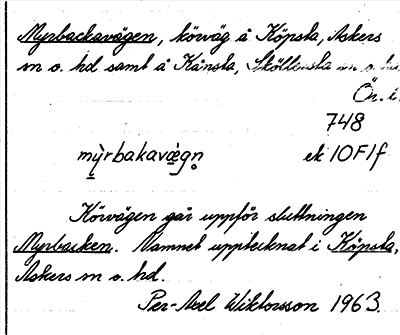 Myrbackavägen, körväg å Köpsta, Askers
sn o. hd samt å Kånsta, Sköllersta sn o. hd
Ör. l.
748
mỳrbakavægn̥ ek 10F1f
Körvägen går uppför sluttningen
Myrbacken. Namnet upptecknat i Köpsta,
Askers sn o. hd.
Per-Axel Wiktorsson 1963.